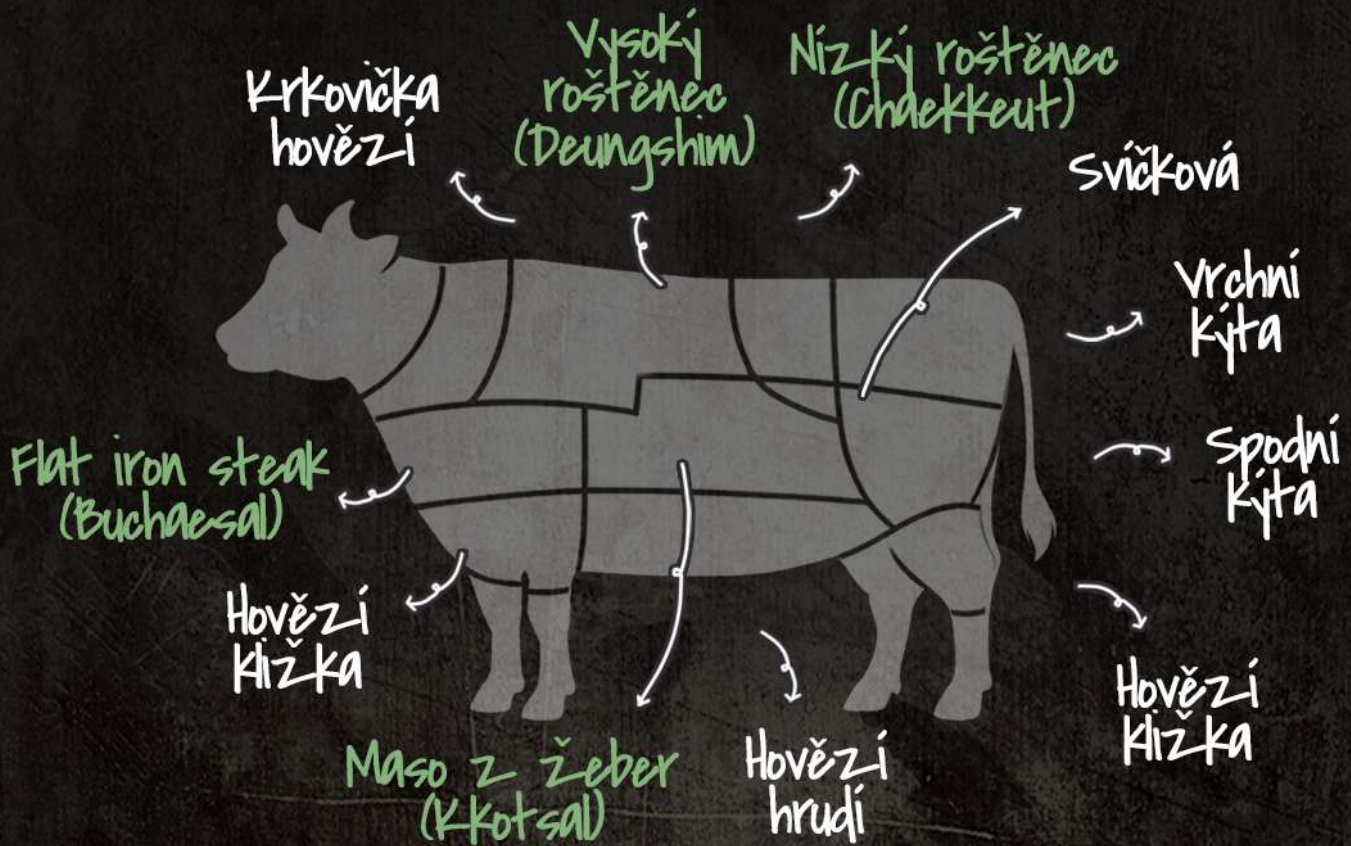 Krkovička
hovězí
Vysoký
roštěnec
(Deungshim)
Nízký roštěnec
(Chaekkeut)
Svíčková
Vrchní
kýta
Spodní
kýta
Flat iron steak
(Buchaesal)
Hovězí
kližka
Maso z žeber
(Kkotsal)
Hovězí
hrudí
Hovězí
kližka